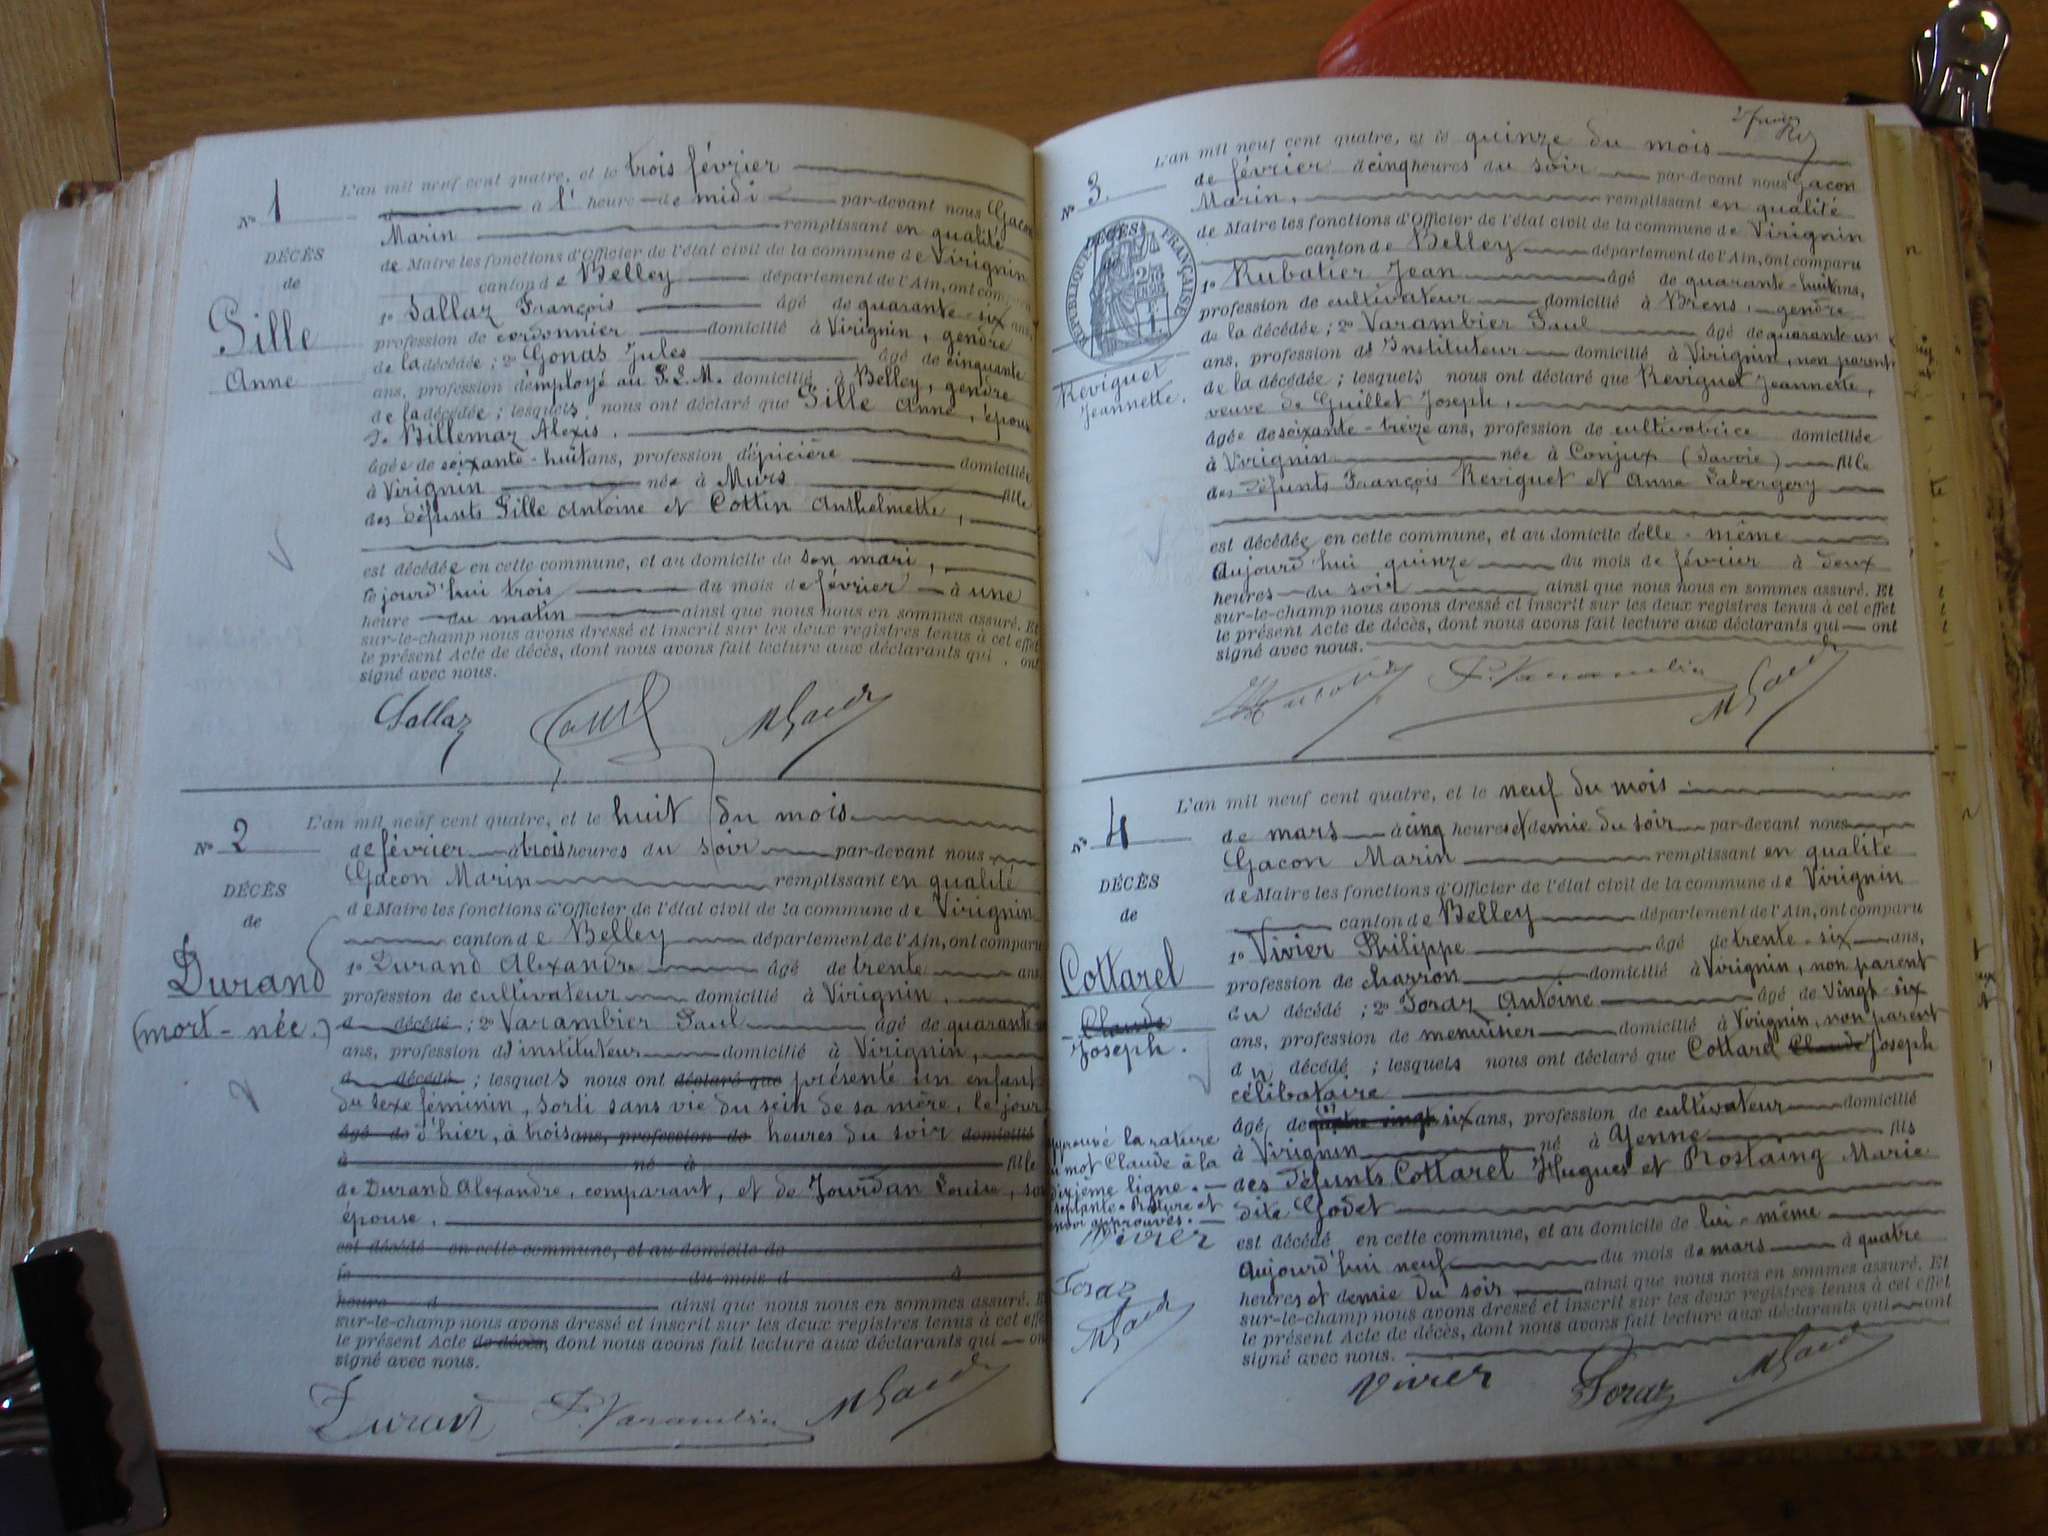 N° 1
DÉCÈS
de
Pille
Anne
L'an mil neuf cent quatre, et le trois février
à l' heure de midi par-devant nous Gacon
Marin remplissant en qualité
de Maire les fonctions d'Officier de l'état civil de la commune de Virignin
canton de Belley département de l'Ain, ont comparu
1° Sallaz François âgé de quarante-six ans,
profession de cordonnier domicilié à Virignin, gendre
de la décédée ; 2° Gonas Jules âgé de cinquante
ans, profession d'employé au P.L.M. domicilié à Belley, gendre
de la décédée ; lesquels nous ont déclaré que Pille Anne, épouse
de Billemaz Alexis,
âgée de soixante-huit ans, profession d'épicière domiciliée
à Virignin née à Murs fille
des défunts Pille Antoine et Cottin Anthelmette,
est décédée en cette commune, et au domicile de son mari,
le jourd'hui trois du mois de février à une
heure du matin ainsi que nous nous en sommes assuré. Et
sur-le-champ nous avons dressé et inscrit sur les deux registres tenus à cet effet
le présent Acte de décès, dont nous avons fait lecture aux déclarants qui ont
signé avec nous.
Sallaz
N° 2
DÉCÈS
de
Durand
(mort-née.)
L'an mil neuf cent quatre, et le huit du mois
de février à trois heures du soir par-devant nous
Gacon Marin remplissant en qualité
de Maire les fonctions d'Officier de l'état civil de la commune de Virignin
canton de Belley département de l'Ain, ont comparu
1° Durand Alexandre âgé de trente ans,
profession de cultivateur domicilié à Virignin,
d décédé ; 2° Varambier Paul âgé de quarante
ans, profession d'instituteur domicilié à Virignin,
d décédé ; lesquels nous ont déclaré que présenté un enfant
du sexe féminin, sorti sans vie du sein de sa mère, le jour
âgé de d'hier, à trois ans, profession de heures du soir domicilié
à né à fille
de Durand Alexandre, comparant, et de Jourdan Louise, son
épouse.
est décédé en cette commune, et au domicile de
le du mois d à
heure d ainsi que nous nous en sommes assuré. Et
sur-le-champ nous avons dressé et inscrit sur les deux registres tenus à cet effet
le présent Acte de décès, dont nous avons fait lecture aux déclarants qui ont
signé avec nous.
Durand P. Varambier MGacon
N° 3.
RÉPUBLIQUE FRANÇAISE
DÉCÈS
Reviguet
Jeannette.
L'an mil neuf cent quatre, et le quinze du mois
de février à cinq heures du soir par-devant nous Gacon
Marin, remplissant en qualité
de Maire les fonctions d'Officier de l'état civil de la commune de Virignin
canton de Belley département de l'Ain, ont comparu
1° Rubatier Jean âgé de quarante-huit ans,
profession de cultivateur domicilié à Brens, gendre
de la décédée ; 2° Varambier Paul âgé de quarante un
ans, profession d'Instituteur domicilié à Virignin, non parent
de la décédée ; lesquels nous ont déclaré que Reviguet Jeannette,
veuve de Guillet Joseph,
âgée de soixante-treize ans, profession de cultivatrice domiciliée
à Virignin née à Conjux (Savoie) fille
des défunts François Reviguet et Anne Labergery
est décédée en cette commune, et au domicile d'elle-même
aujourd'hui quinze du mois de février à deux
heures du soir ainsi que nous nous en sommes assuré. Et
sur-le-champ nous avons dressé et inscrit sur les deux registres tenus à cet effet
le présent Acte de décès, dont nous avons fait lecture aux déclarants qui ont
signé avec nous.
P. Varambier MGacon
N° 4
DÉCÈS
de
Cottarel
Claude
Joseph.
L'an mil neuf cent quatre, et le neuf du mois
de mars à cinq heures et demie du soir par-devant nous
Gacon Marin remplissant en qualité
de Maire les fonctions d'Officier de l'état civil de la commune de Virignin
canton de Belley département de l'Ain, ont comparu
1° Vivier Philippe âgé de trente-six ans,
profession de charron domicilié à Virignin, non parent
du décédé ; 2° Foraz Antoine âgé de vingt-six
ans, profession de menuisier domicilié à Virignin, non parent
du décédé ; lesquels nous ont déclaré que Cottarel Claude Joseph
célibataire
âgé de quatre vingt six ans, profession de cultivateur domicilié
à Virignin né à Yenne fils
des défunts Cottarel Hugues et Rostaing Marie
dite Godet
est décédé en cette commune, et au domicile de lui-même
aujourd'hui neuf du mois de mars à quatre
heures et demie du soir ainsi que nous nous en sommes assuré. Et
sur-le-champ nous avons dressé et inscrit sur les deux registres tenus à cet effet
le présent Acte de décès, dont nous avons fait lecture aux déclarants qui ont
signé avec nous.
Approuvé la rature
du mot Claude à la
dixième ligne.
septante. Rature et
renvoi approuvés.
Vivier
Foraz
MGacon
Vivier Foraz MGacon